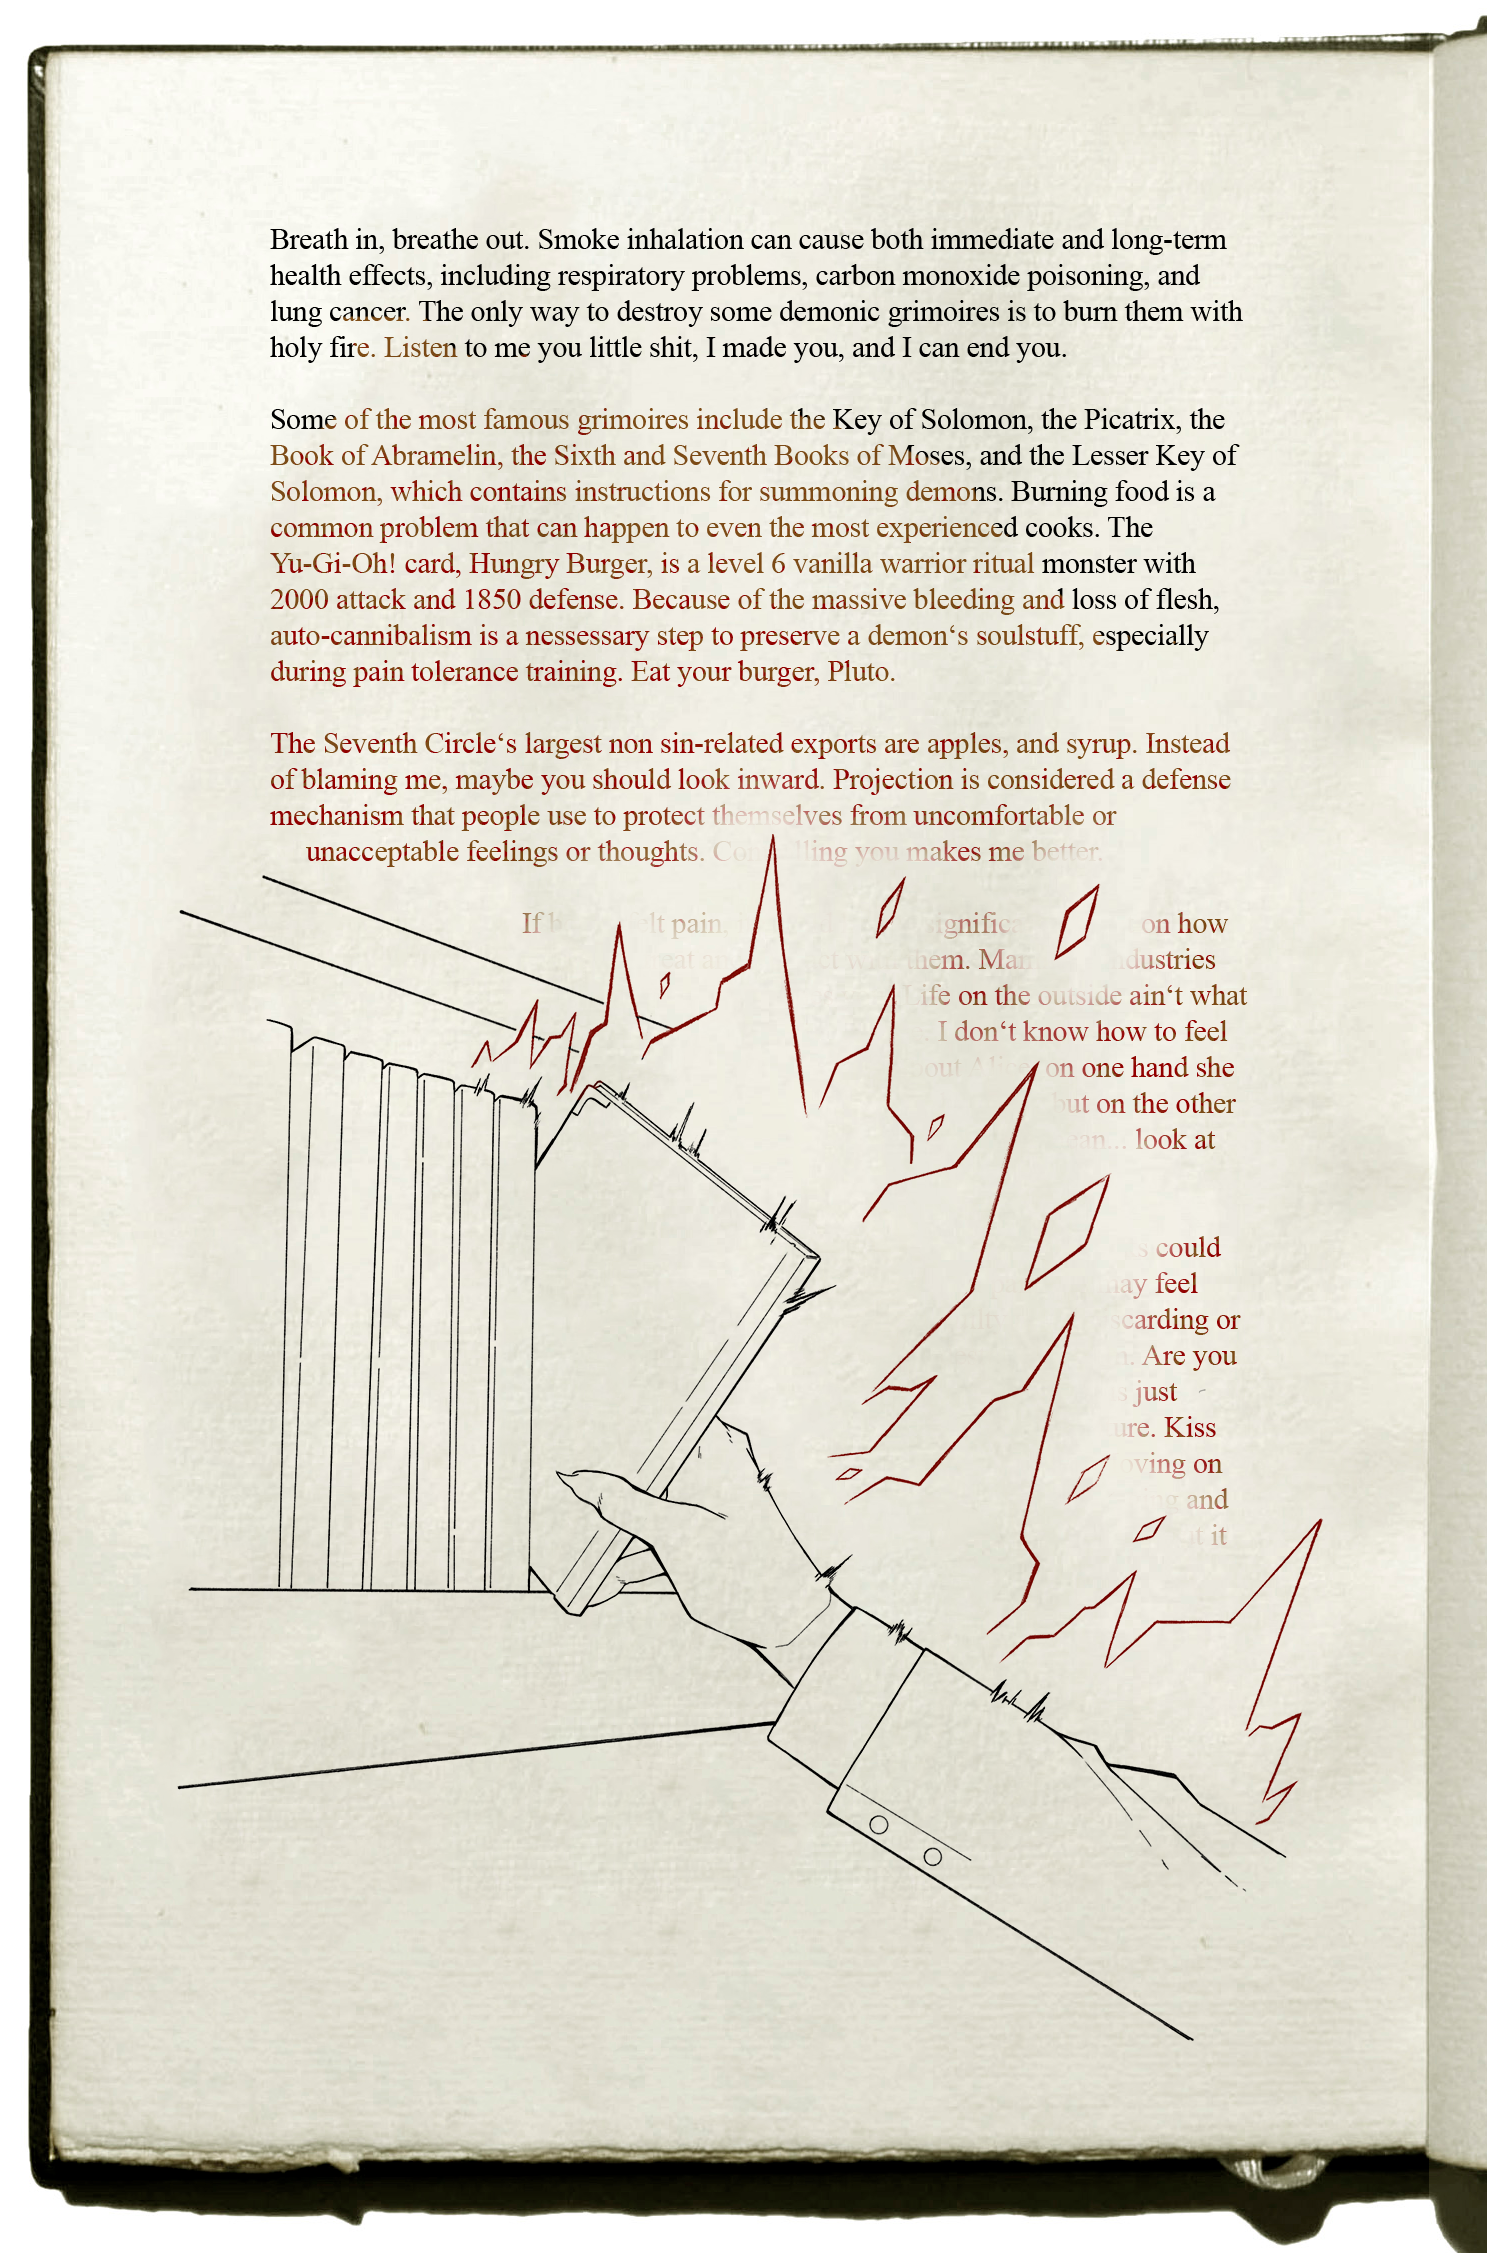 Breath in, breathe out. Smoke inhalation can cause both immediate and long-term
health effects, including respiratory problems, carbon monoxide poisoning, and
lung cancer. The only way to destroy some demonic grimoires is to burn them with
holy fire. Listen to me you little shit, I made you, and I can end you.
Some of the most famous grimoires include the Key of Solomon, the Picatrix, the
Book of Abramelin, the Sixth and Seventh Books of Moses, and the Lesser Key of
Solomon, which contains instructions for summoning demons. Burning food is a
common problem that can happen to even the most experienced cooks. The
Yu-Gi-Oh! card, Hungry Burger, is a level 6 vanilla warrior ritual monster with
2000 attack and 1850 defense. Because of the massive bleeding and loss of flesh,
auto-cannibalism is a nessessary step to preserve a demon‘s soulstuff, especially
during pain tolerance training. Eat your burger, Pluto.
The Seventh Circle‘s largest non sin-related exports are apples, and syrup. Instead
of blaming me, maybe you should look inward. Projection is considered a defense
mechanism that people use to protect themselves from uncomfortable or
unacceptable feelings or thoughts. you makes me better.
If pain, on how
them. dustries
Life on the outside ain‘t what
I don‘t know how to feel
on one hand she
but on the other
can... look at
could
may feel
scarding or
Are you
just
Kiss
on
and
it